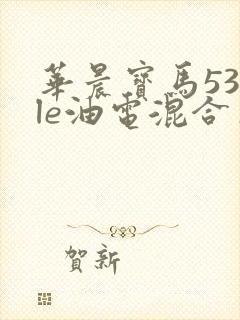 華晨寶馬53
le油電混合
賀新